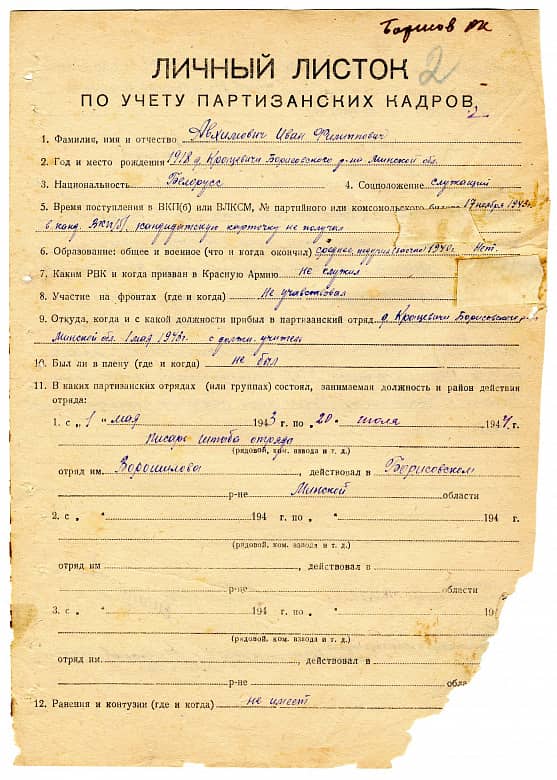 Борисов РК
2
ЛИЧНЫЙ ЛИСТОК
ПО УЧЕТУ ПАРТИЗАНСКИХ КАДРОВ
1. Фамилия, имя и отчество Авхимович Иван Филиппович
2. Год и место рождения 1918 д. Крощевичи Борисовского р-на Минской обл.
3. Национальность Белорусс 4. Соцположение служащий
5. Время поступления в ВКП(б) или ВЛКСМ, № партийного или комсомольского 17 ноября 1943
в канд. ВКП(б), кандидатскую карточку не получил
6. Образование: общее и военное (что и когда окончил) среднее, 1940г. Нет.
7. Каким РВК и когда призван в Красную Армию не служил
8. Участие на фронтах (где и когда) Не учавствовал
9. Откуда, когда и с какой должности прибыл в партизанский отряд д. Крощевичи Борисовского
Минской обл. 1 мая 1943г. с должн. учитель
10. Был ли в плену (где и когда) не был
11. В каких партизанских отрядах (или группах) состоял, занимаемая должность и район действия
отряда:
1. с „ 1 " мая 1943 г. по „ 20 " июля 1944 г.
писарь штаба отряда
(рядовой, ком. взвода и т. д.)
отряд им. Ворошилова, действовал в Борисовском
р-не Минской области
2. с „ " 194 г. по „ " 194 г.
(рядовой, ком. взвода и т. д.)
отряд им. , действовал в
р-не области
3. с „ " 194 г. по „ " 194
(рядовой, ком. взвода и т. д.)
отряд им. , действовал в
р-не обла
12. Ранения и контузии (где и когда) не имеет